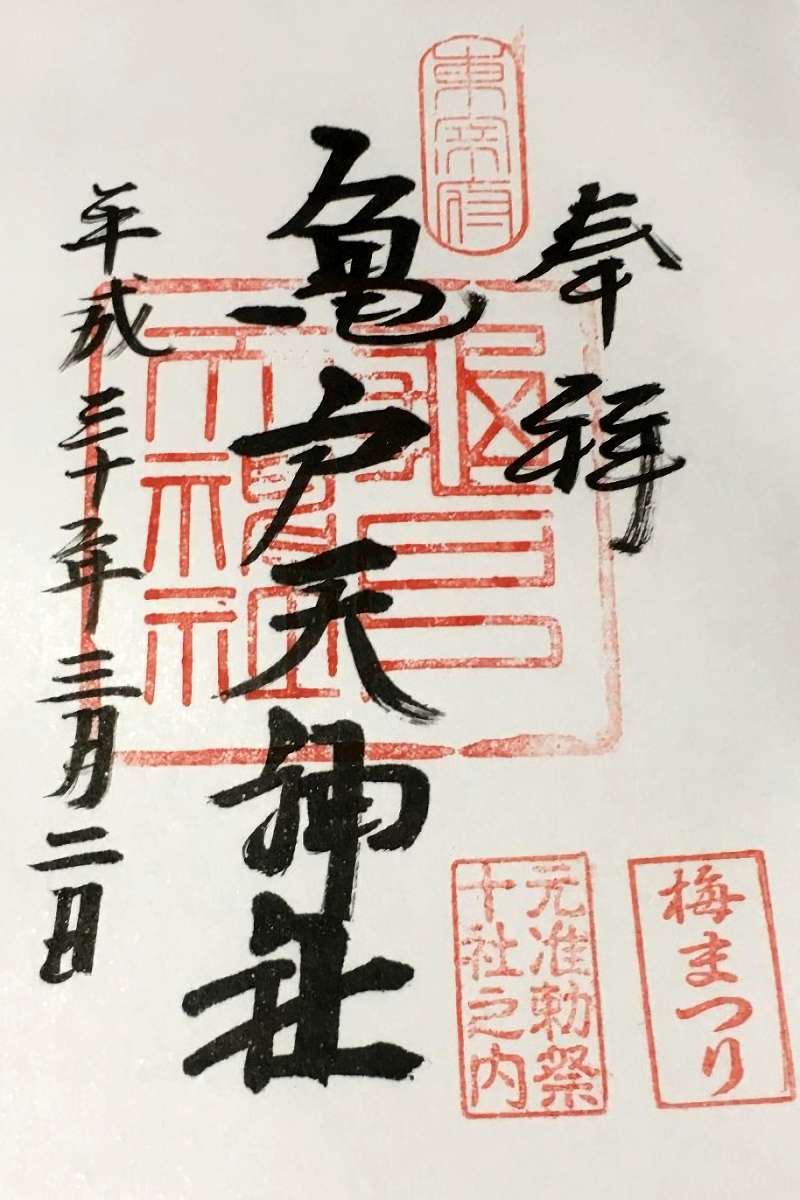 東宰府
奉拝
亀戸天神社
龜戸
天神社
平成三十一年三月二日
梅まつり
元准勅祭
十社之内